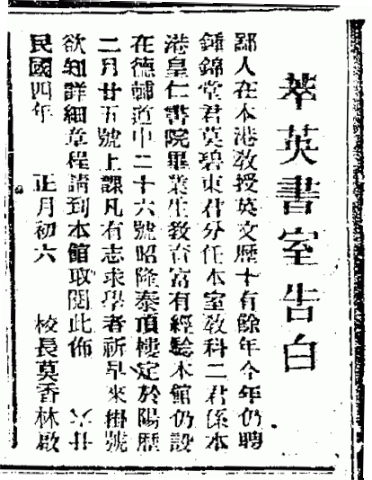 萃英書室告白
鄙人在本港敎授英文歷十有餘年今年仍聘
鍾錦堂君莫碧東君分任本室敎科二君係本
港皇仁書院畢業生敎育富有經驗本館仍設
在德輔道中二十六號昭隆泰頂樓定於陽歷
二月廿五號上課凡有志求學者祈早來掛號
欲知詳細章程請到本館取閱此佈　六廿
民國四年　正月初六　校長莫香林啟